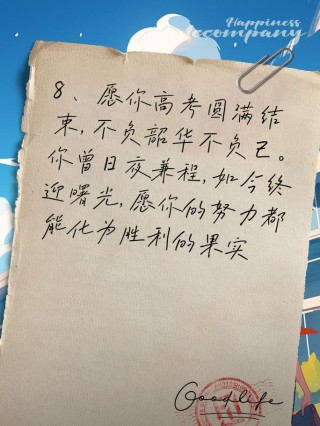 Happiness
Accompany
8、愿你高考圆满结
束，不负韶华不负己。
你曾日夜兼程，如今终
迎曙光，愿你的努力都
能化为胜利的果实
Goodlife